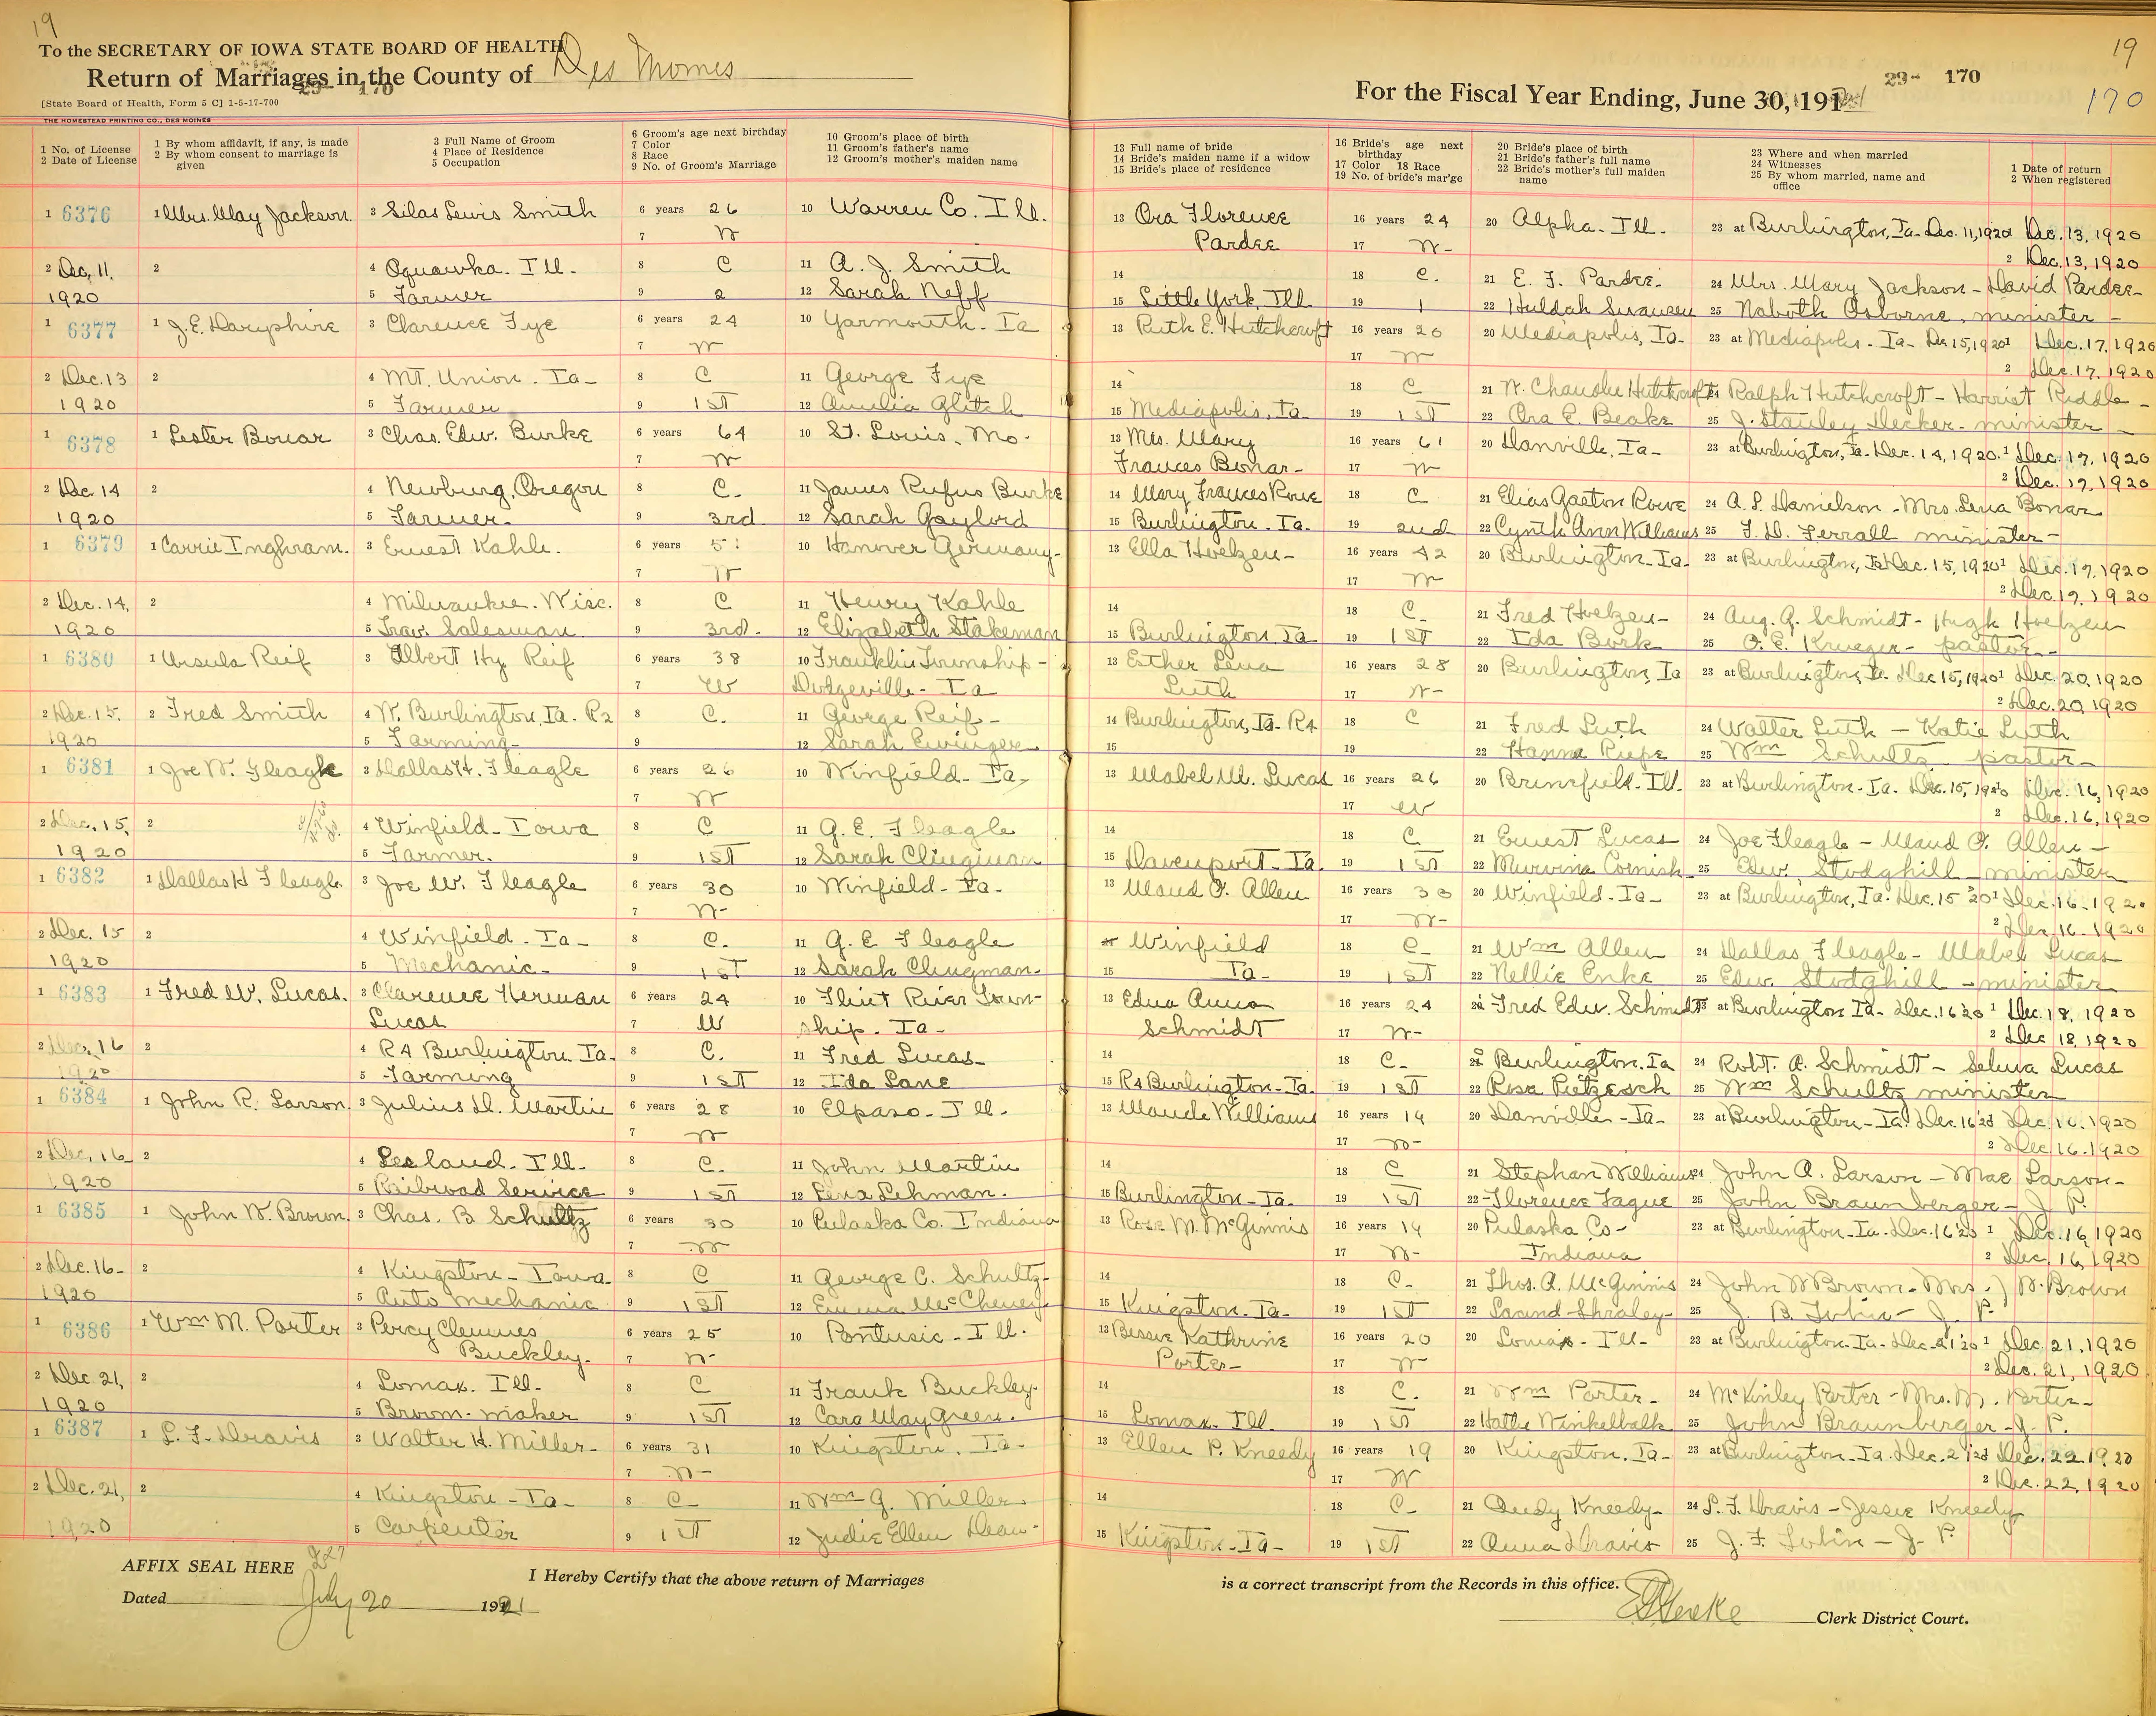 19
To the SECRETARY OF IOWA STATE BOARD OF HEALTH
Return of Marriages in the County of Des Moines
29- 170
[State Board of Health, Form 5 C] 1-5-17-700
THE HOMESTEAD PRINTING CO., DES MOINES
19
29- 170
For the Fiscal Year Ending, June 30, 1921
170
1 No. of License
2 Date of License
1 By whom affidavit, if any, is made
2 By whom consent to marriage is given
3 Full Name of Groom
4 Place of Residence
5 Occupation
6 Groom's age next birthday
7 Color
8 Race
9 No. of Groom's Marriage
10 Groom's place of birth
11 Groom's father's name
12 Groom's mother's maiden name
13 Full name of bride
14 Bride's maiden name if a widow
15 Bride's place of residence
16 Bride's age next birthday
17 Color 18 Race
19 No. of bride's mar'ge
20 Bride's place of birth
21 Bride's father's full name
22 Bride's mother's full maiden name
23 Where and when married
24 Witnesses
25 By whom married, name and office
1 Date of return
2 When registered
1 6376 1 Mrs. May Jackson 3 Silas Lewis Smith 6 years 26 10 Warren Co. Ill. 13 Ora Florence 16 years 24 20 Alpha. Ill. 23 at Burlington, Ia. Dec. 11, 1920 Dec. 13, 1920
7 W Pardee 17 W- 2 Dec. 13, 1920
2 Dec, 11, 2 4 Oquawka. Ill. 8 C 11 A. J. Smith 14 18 C. 21 E. F. Pardee. 24 Mrs. Mary Jackson - David Pardee-
1920 5 Farmer 9 2 12 Sarah Neff 15 Little York, Ill 19 1 22 Huldah Swansen 25 Naboth Osborne, minister-
1 6377 1 J. E. Darpshire 3 Clarence Fye 6 years 24 10 Yarmouth- Ia 13 Ruth E. Hutchcroft 16 years 20 20 Mediapolis, Ia- 23 at Mediapolis- Ia- Dec 15, 1920 1 Dec. 17, 1920
7 W 17 W 2 Dec. 17, 1920
2 Dec. 13 2 4 Mt. Union. Ia- 8 C 11 George Fye 14 18 C 21 W. Chandler Hutchcroft 24 Ralph Hutchcroft- Harriet Riddle-
1920 5 Farmer 9 1st 12 Amelia Glitch 15 Mediapolis, Ia. 19 1st 22 Ora E. Beake 25 J. Stanley Decker- minister-
1 6378 1 Lester Bonar 3 Chas. Edw. Burke 6 years 64 10 St. Louis, Mo. 13 Mrs. Mary 16 years 61 20 Danville, Ia- 23 at Burlington, Ia. Dec. 14, 1920. 1 Dec. 17, 1920
7 W Frances Bonar- 17 W 2 Dec. 17, 1920
2 Dec. 14 2 4 Newburg, Oregon 8 C. 11 James Rufus Burke 14 Mary Frances Rowe 18 C 21 Elias Gaston Rowe 24 A. L. Danielson - Mrs. Lena Bonar
1920 5 Farmer- 9 3rd 12 Sarah Gaylord 15 Burlington. Ia. 19 2nd 22 Cynth Ann Williams 25 F. D. Ferrall minister-
1 6379 1 Carrie Inghram. 3 Ernest Kahle. 6 years 51 10 Hanover Germany- 13 Ella Hoelzen- 16 years 42 20 Burlington- Ia- 23 at Burlington, Ia Dec. 15, 1920 1 Dec. 17, 1920
7 W 17 W 2 Dec. 17, 1920
2 Dec. 14, 2 4 Milwaukee. Wisc. 8 C 11 Henry Kahle 14 18 C. 21 Fred Hoelzen- 24 Aug. A. Schmidt- Hugh Hoelzen
1920 5 Trav. Salesman 9 3rd- 12 Elizabeth Stakeman 15 Burlington, Ia 19 1st 22 Ida Burk 25 O. E. Krueger- pastor-
1 6380 1 Ursula Reif 3 Albert Hy. Reif 6 years 38 10 Franklin Township- 13 Esther Lena 16 years 28 20 Burlington, Ia 23 at Burlington, Ia. Dec 15, 1920 1 Dec. 20, 1920
7 W Dodgeville- Ia Luth 17 W- 2 Dec. 20, 1920
2 Dec. 15, 2 Fred Smith 4 W. Burlington, Ia. R2 8 C. 11 George Reif- 14 Burlington, Ia- R4 18 C 21 Fred Luth 24 Walter Luth - Katie Luth
1920 5 Farming- 9 12 Sarah Ewinger 15 19 22 Hanna Riepe 25 Wm Schultz pastor-
1 6381 1 Joe W. Fleagle 3 Dallas H. Fleagle 6 years 26 10 Winfield- Ia, 13 Mabel M. Lucas 16 years 26 20 Brimfield- Ill. 23 at Burlington- Ia. Dec. 15, 1920 Dec. 16, 1920
7 W 17 W 2 Dec. 16, 1920
2 Dec, 15, 2 4 Winfield- Iowa 8 C 11 G. E. Fleagle 14 18 C 21 Ernest Lucas 24 Joe Fleagle - Maud O. Allen-
1920 5 Farmer. 9 1st 12 Sarah Clingman 15 Davenport- Ia. 19 1st 22 Murvina Cornish 25 Edw. Stodghill- minister
1 6382 1 Dallas H Fleagle. 3 Joe W. Fleagle 6 years 30 10 Winfield- Ia- 13 Maud O. Allen 16 years 30 20 Winfield- Ia- 23 at Burlington, Ia. Dec. 15 '20 1 Dec. 16. 1920
7 W- 17 W- 2 Dec. 16- 1920
2 Dec. 15 2 4 Winfield. Ia- 8 C. 11 G. E Fleagle Winfield 18 C- 21 Wm Allen 24 Dallas Fleagle- Mabel Lucas
1920 5 Mechanic- 9 1st 12 Sarah Clingman- 15 Ia- 19 1st 22 Nellie Enke 25 Edw Stodghill- minister
1 6383 1 Fred W. Lucas. 3 Clarence Herman 6 years 24 10 Flint River Town- 13 Edna Anna 16 years 24 Fred Edw. Schmidt 23 at Burlington Ia- Dec. 16 '20 1 Dec. 18, 1920
Lucas 7 W ship- Ia- Schmidt 17 W- 2 Dec 18, 1920
2 Dec, 16 2 4 R4 Burlington. Ia. 8 C. 11 Fred Lucas- 14 18 C- Burlington, Ia 24 Robt. A. Schmidt - Selma Lucas
1920 5 Farming 9 1st 12 Ida Lane 15 R4 Burlington- Ia. 19 1st 22 Rosa Pietzesch 25 Wm Schultz minister
1 6384 1 John R. Larson. 3 Julius D. Martin 6 years 28 10 Elpaso- Ill. 13 Maude Williams 16 years 19 20 Danville- Ia- 23 at Burlington- Ia. Dec. 16 '20 Dec. 16. 1920
7 W 17 W- 2 Dec. 16. 1920
2 Dec, 16- 2 4 Leeland. Ill. 8 C. 11 John Martin 14 18 C 21 Stephan Williams 24 John A. Larson - Mae Larson-
1920 5 Railroad Service 9 1st 12 Lena Lehman. 15 Burlington- Ia. 19 1st 22 Florence Fague 25 John Braunberger- J P.
1 6385 1 John W. Brown. 3 Chas. B Schultz 6 years 30 10 Pulaska Co. Indiana 13 Rose M. McGinnis 16 years 19 20 Pulaska Co- 23 at Burlington- Ia- Dec. 16 '20 1 Dec. 16, 1920
7 W 17 W- Indiana 2 Dec, 16, 1920
2 Dec. 16- 2 4 Kingston- Iowa 8 C 11 George C. Schultz- 14 18 C- 21 Thos. A. McGinnis 24 John W Brown. Mrs. J W. Brown
1920 5 Auto mechanic 9 1st 12 Emma McCheney- 15 Kingston. Ia- 19 1st 22 25 J. P.
1 6386 1 Wm M. Porter 3 Percy Clemmes 6 years 25 10 Pontusic- Ill. 13 Bessie Kathrine 16 years 20 20 Lomax- Ill- 23 at Burlington- Ia- Dec. 21 '20 1 Dec. 21, 1920
Buckley- 7 W- Porter- 17 W 2 Dec. 21, 1920
2 Dec. 21, 2 4 Lomax. Ill- 8 C 11 Frank Buckley- 14 18 C. 21 Wm Porter- 24 McKinley Porter- Mrs. M. Porter-
1920 5 Broom- maker 9 1st 12 Cara May Green. 15 Lomax- Ill 19 1st 22 Hattie Winkelbalk 25 John Braunberger- J. P.
1 6387 1 L. F. Dravis 3 Walter H. Miller- 6 years 31 10 Kingston, Ia- 13 Ellen P. Kneedy 16 years 19 20 Kingston, Ia- 23 at Burlington- Ia. Dec. 21 '20 Dec. 22. 1920
7 W- 17 W 2 Dec. 22, 1920
2 Dec. 21, 2 4 Kingston- Ia- 8 C- 11 Wm G. Miller 14 18 C- 21 Andy Kneedy- 24 L. F. Dravis- Jessie Kneedy
1920 5 Carpenter 9 1st 12 Judie Ellen Dean- 15 Kingston- Ia- 19 1st 22 Anna Dravis 25 J. P.
AFFIX SEAL HERE
I Hereby Certify that the above return of Marriages is a correct transcript from the Records in this office.
Dated July 20 1921
Clerk District Court.